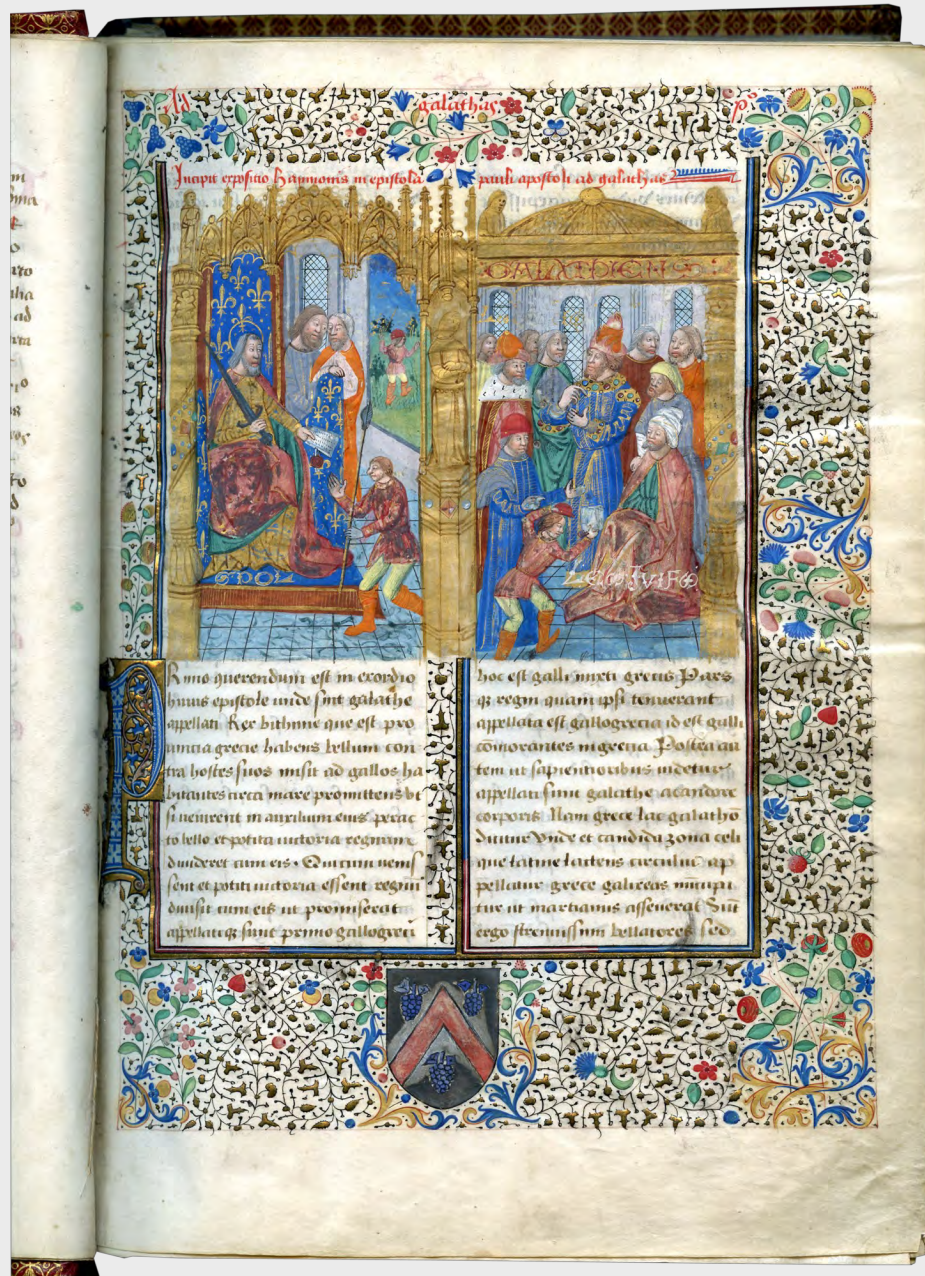 Ad galathas
Incipit expositio Haymonis in epistola pauli apostoli ad galathas
SPOL
LES JUIFS
Rimo querendum est in exordio
huius epistole unde sint galathe
appellati Rex bithinie que est pro
uincia grecie habens bellum con
tra hostes suos misit ad gallos ha
bitantes circa mare promittens vt
si uenirent in auxilium eius perac
to bello et potita uictoria regnum
diuideret cum eis. Qui cum uenis
sent et potiti uictoria essent regnū
diuisit cum eis ut promiserat
appellatiqꝫ sunt primo gallogreci
hoc est galli mixti grecis Pars
qꝫ regni quam ipsi tenuerant
appellata est gallogrecia id est galli
cōmorantes in grecia Postea au
tem ut sapientioribus uidetur
appellati sunt galathe a candore
corporis Nam grece lac galatho
dicitur Vnde et candida zona celi
que latine lacteus circulus ap
pellatur grece galixeas nūcupa
tur ut martianus asseuerat Sūt
ergo strenuissimi bellatores sed